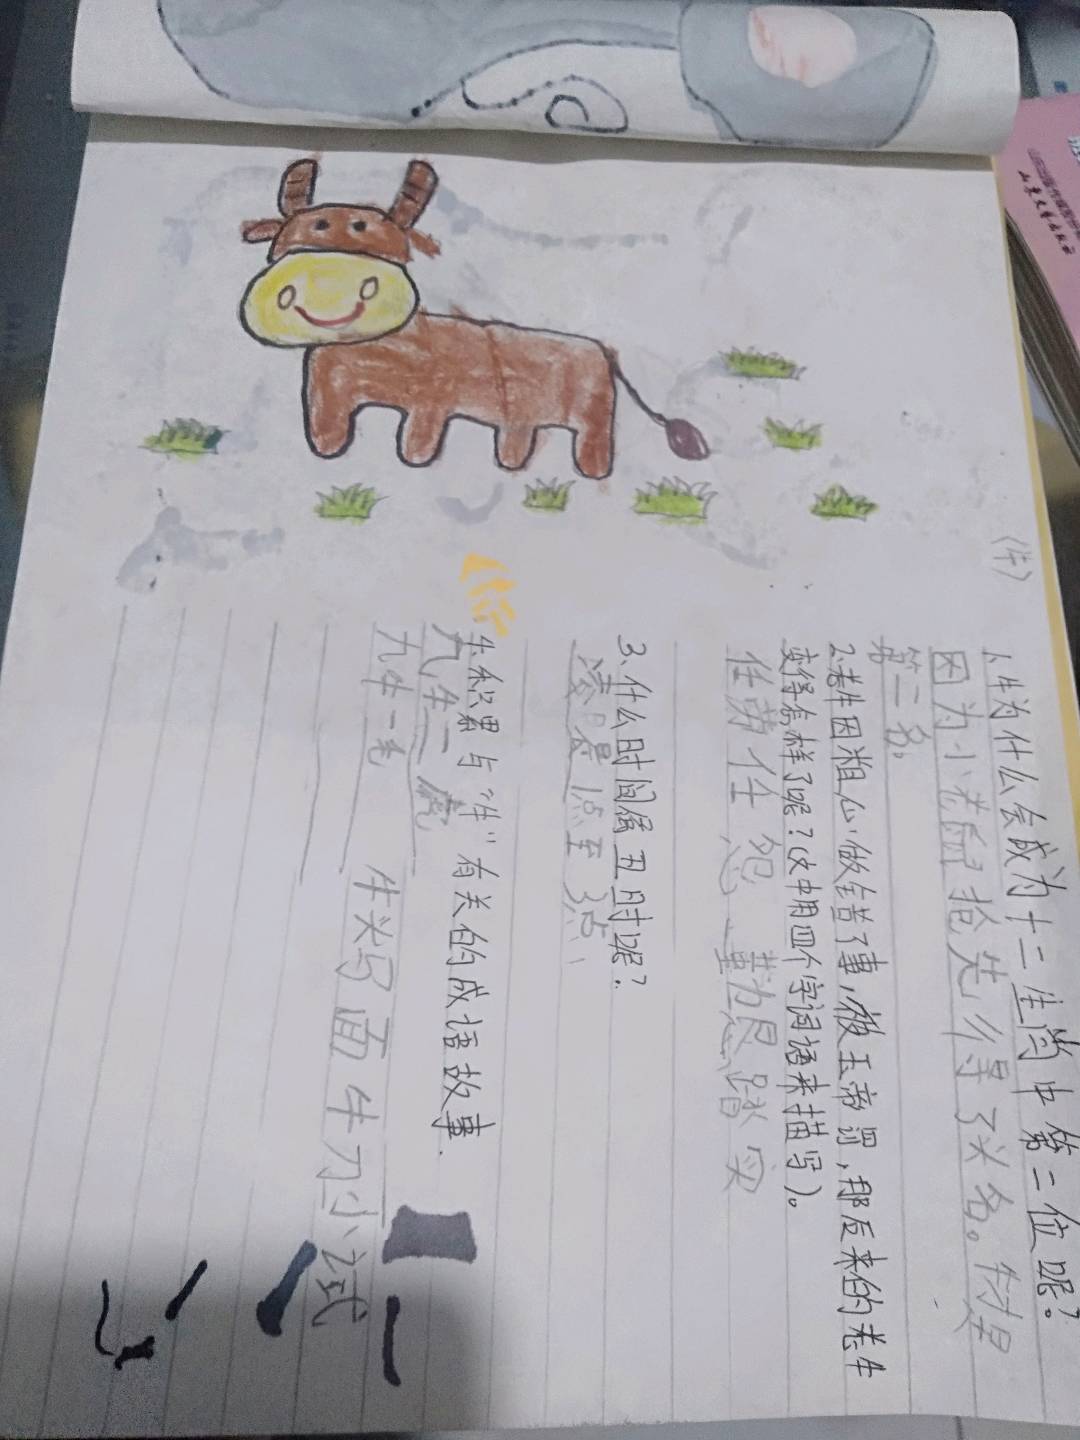 (牛)
1、牛为什么会成为十二生肖中第二位呢?
因为小老鼠抢先得了头名。牛才是
第二名。
2、老牛因粗心做错了事,被玉帝罚,那后来的老牛
变得怎样了呢?(文中用四个字词语来描写)。
任劳任怨 勤恳踏实
3、什么时间属丑时呢?
凌晨1点至3点
4、积累与“牛”有关的成语故事.
九牛二虎
九牛一毛
牛头马面 牛刀小试